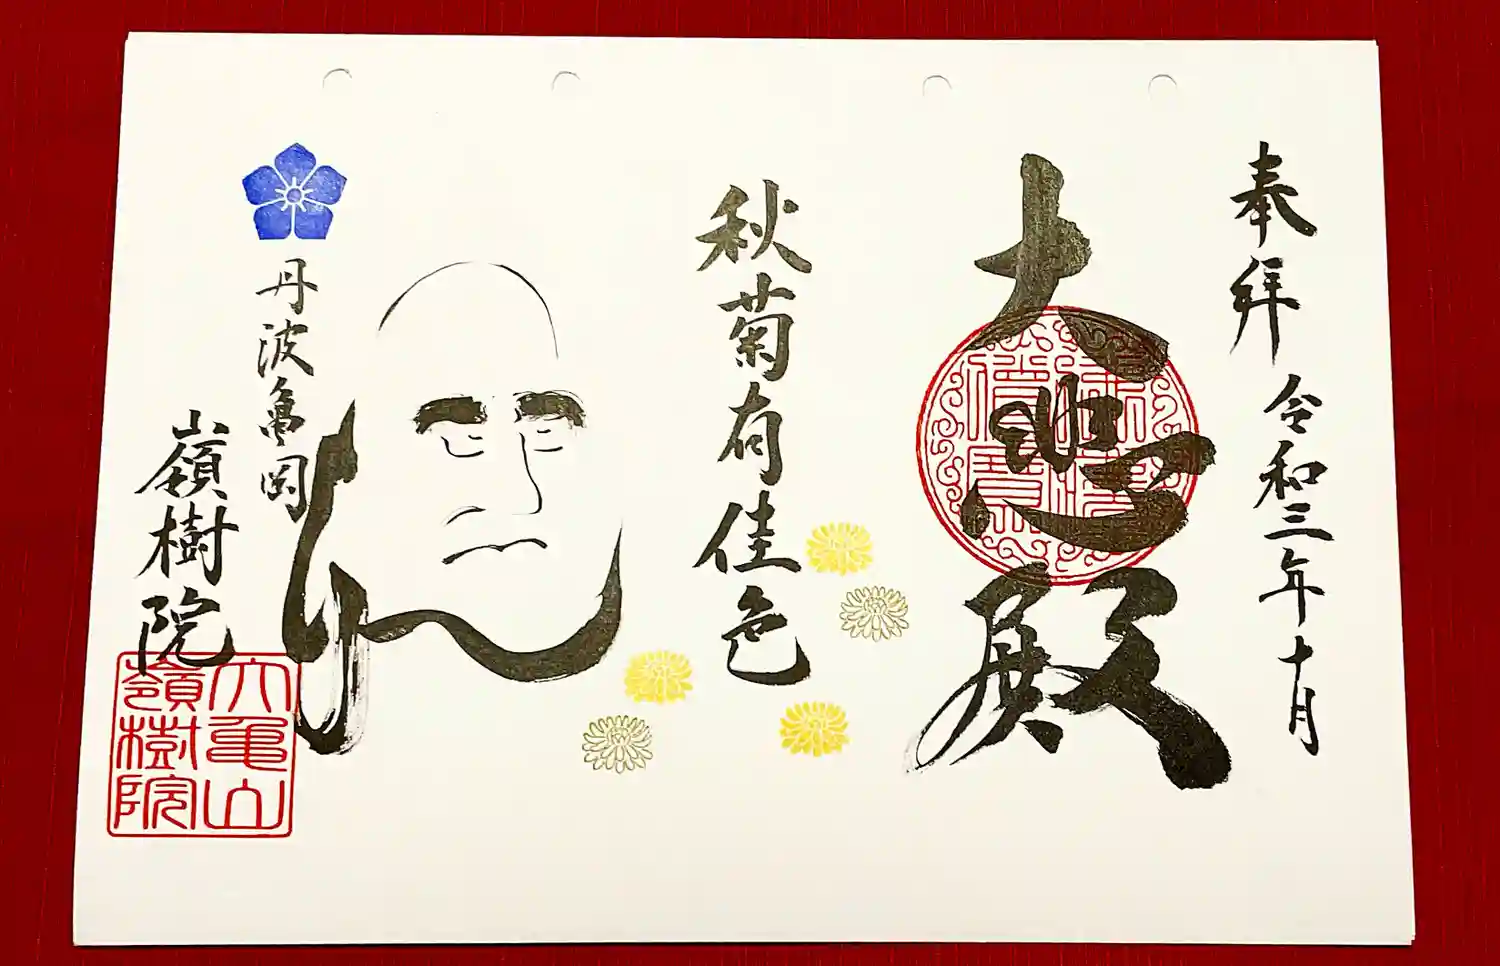 奉拝 令和三年十月
大悲殿
秋菊有佳色
丹波亀岡
嶺樹院
大亀山
嶺樹院